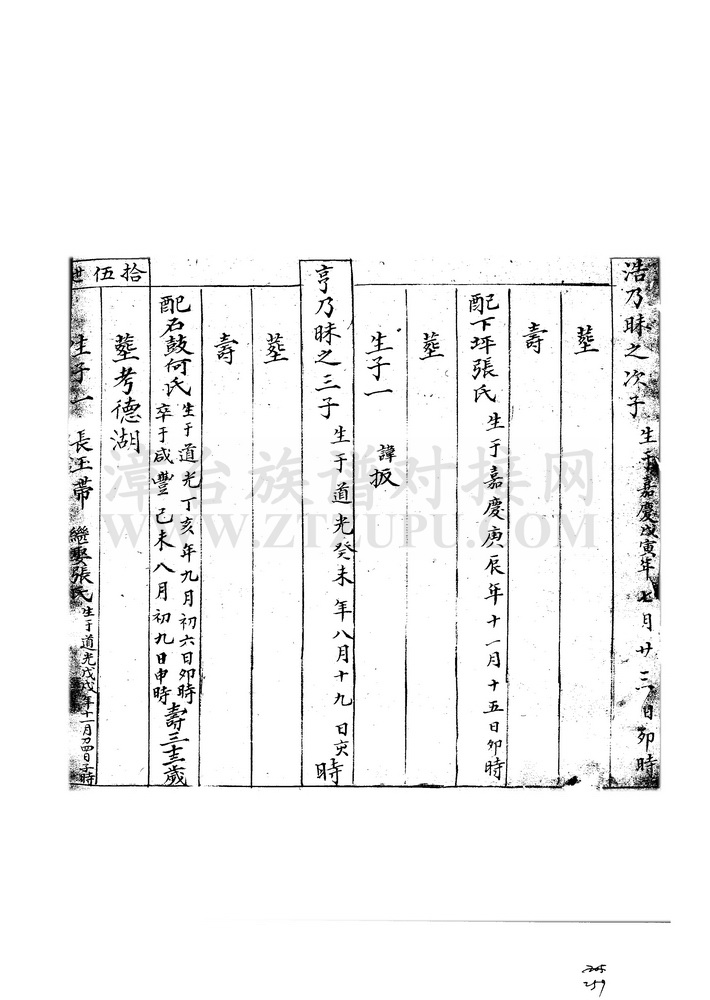 浩乃昧之次子 生于嘉慶戊寅年七月廿三日卯時
塟
壽
配下坪張氏 生于嘉慶庚辰年十一月十五日卯時
塟
生子一 諱扳
亨乃昧之三子 生于道光癸未年八月十九日亥時
塟
壽
配石鼓何氏 生于道光丁亥年九月初六日卯時
卒于咸豐己未八月初九日申時 壽三十三歲
拾伍世
塟考德湖
生子一 長玉帶 繼娶張氏 生于道光戊戌年十一月初四日子時
漳台族谱对接网
WWW.ZTZUPU.COM
259